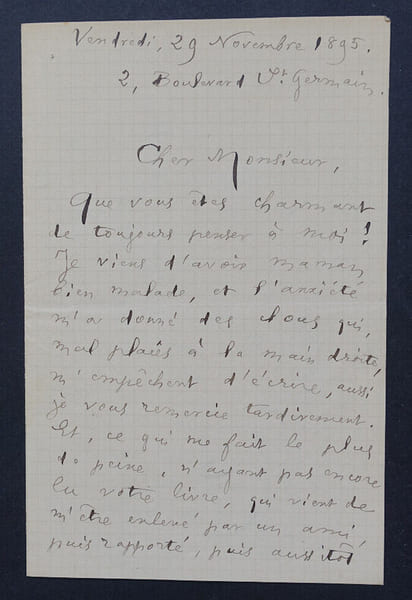 Vendredi, 29 Novembre 1895.
2, Boulevard St Germain.
Cher Monsieur,
Que vous êtes charmant
de toujours penser à moi !
Je viens d'avoir maman
bien malade, et l'anxiété
m'a donné des clous qui,
mal placés à la main droite,
m'empêchent d'écrire, aussi
je vous remercie tardivement.
Et, ce qui me fait le plus
de peine, n'ayant pas encore
lu votre livre, qui vient de
m'être enlevé par un ami,
puis rapporté, puis aussitôt